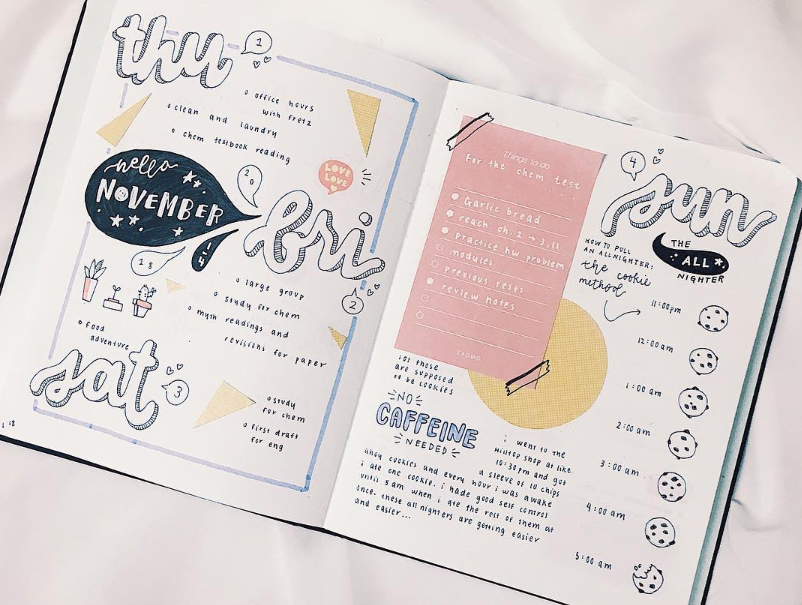 thu
1
o office hours
with fretz
o clean and laundry
o chem textbook reading
hello
NOVEMBER
20
18
LOVE
LOVE
fri
2
o large group
o study for chem
o myth readings and
revisions for paper
o food
adventure
sat
3
o study
for chem
o first draft
for eng
Things to do
For the chem test
Garlic bread
reach ch. 2 → 3.11
practice hw problem
modules
previous tests
review notes
ios those
are supposed
to be cookies
NO
CAFFEINE
NEEDED
i went to the
hilltop shop at like
10:30pm and got
a sleeve of 10 chips
ahoy cookies and every hour i was awake
i ate one cookie. i made good self control
until 5am when i ate the rest of them at
once. these all nighters are getting easier
and easier...
4
sun
THE
ALL
NIGHTER
HOW TO PULL
AN ALLNIGHTER:
the cookie
method
11:00pm
12:00am
1:00am
2:00am
3:00am
4:00am
5:00am